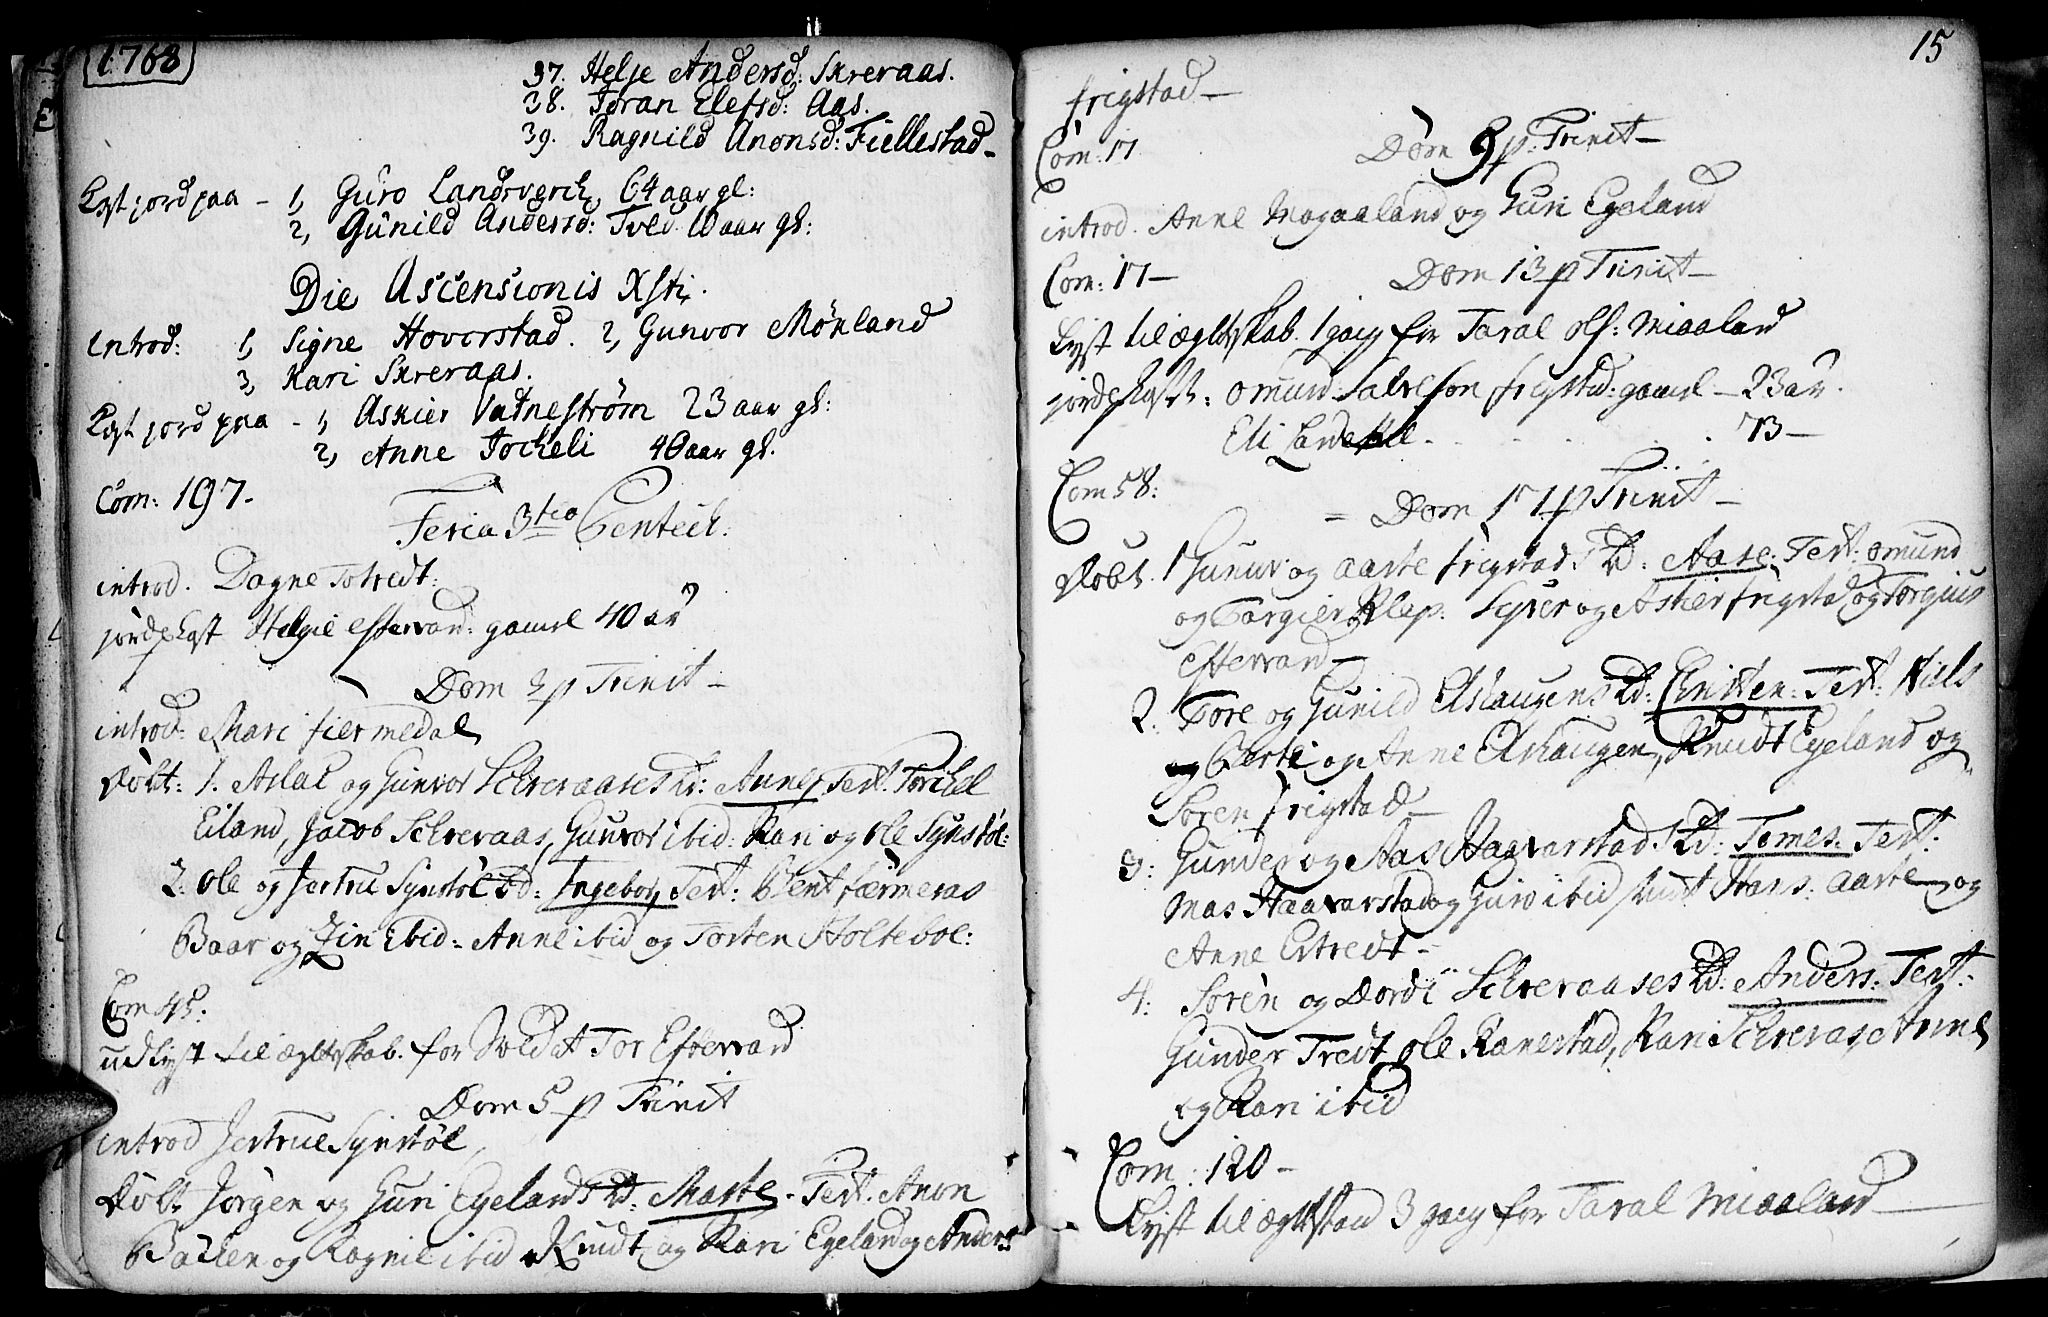 1768
37. Helje Andersd: Skreraas.
38. Toran Elefsd: Aas.
39. Ragnild Anonsd: Fiellestad -
Kast jord paa - 1, Guro Landsverck, 64 aar gl:
2, Gunild Andersd: Tved. 10 aar gl:
Die Ascensionis Xsti.
Introd: 1, Signe Hoverstad. 2, Gunvor Mökland
3, Kari Skreraas.
Kast jord paa - 1, Askier Vatneström 23 aar gl:
2, Anne Tockeli 40 aar gl.
Com: 197.
Feria 3tia Pentec:
introd. Dagne Totredt:
jordekast Helgie Eftevand: gamel 40 aar
Dom 3 p Trinit -
introd: Mari fiermedal
Döbt: 1. Aslac og Gunvor Schreraases Bd: Anne, Test. Torchel
Eiland, Jacob Schreraas, Gunvor ibid: Kari og Ole Synstöl:
2: Ole og Jertru Synstöl Bd: Ingebor, Test: Bent færmeraas
Baar og ibid: Anne ibid og Torten Holtebol:
Com 45:
udlyst til ægteskab. for Soldat Tor Eftevand
Dom 5 p Trinit
introd Jertrue Synstöl
Döbt Jörgen og Guri Egelands Bd: Marte. Test. Anon
Backen og Ragnil ibid Knudt og Kari Egeland og Anders
15
frigstad -
Com: 17
Dom 9 p: Trinit -
introd. Anne Mogaaland og Guri Egeland
Com: 17 -
Dom 13 p Trinit -
Lyst til ægteskab. 1 gang for Taral Ols: Miaaland
jordekast: Omund Salvesøn frigstad: gamel - 23 aar.
Eli . . . . 73 -
Com 58:
= Dom 17 p Trinit -
Döbt. 1 Gunur og Aarte frigstads Bd: Aase: Test: Omund
og Targier Klep. Syver og Askier frigstad og Torgius
Eftevand -
2. Tore og Gunild Elshaugens Bd: Christen: Test: Niels
og Berte og Anne Elshaugen, Knudt Egeland og
Sören frigstad -
3: Gunder og Aas Haavarstads Bd: Tomes: Test:
Mas Haavarstad og Guro ibid Hans: Aarte og
Anne Ertredt -
4: Sören og Dordi Schreraases Bd: Anders: Test:
Gunder Tredt, Ole Ranestad, Kari Schreraas, Anne
og Kari ibid
Com: 120 -
Lyst til ægtestand 3 gang for Taral Miaaland -